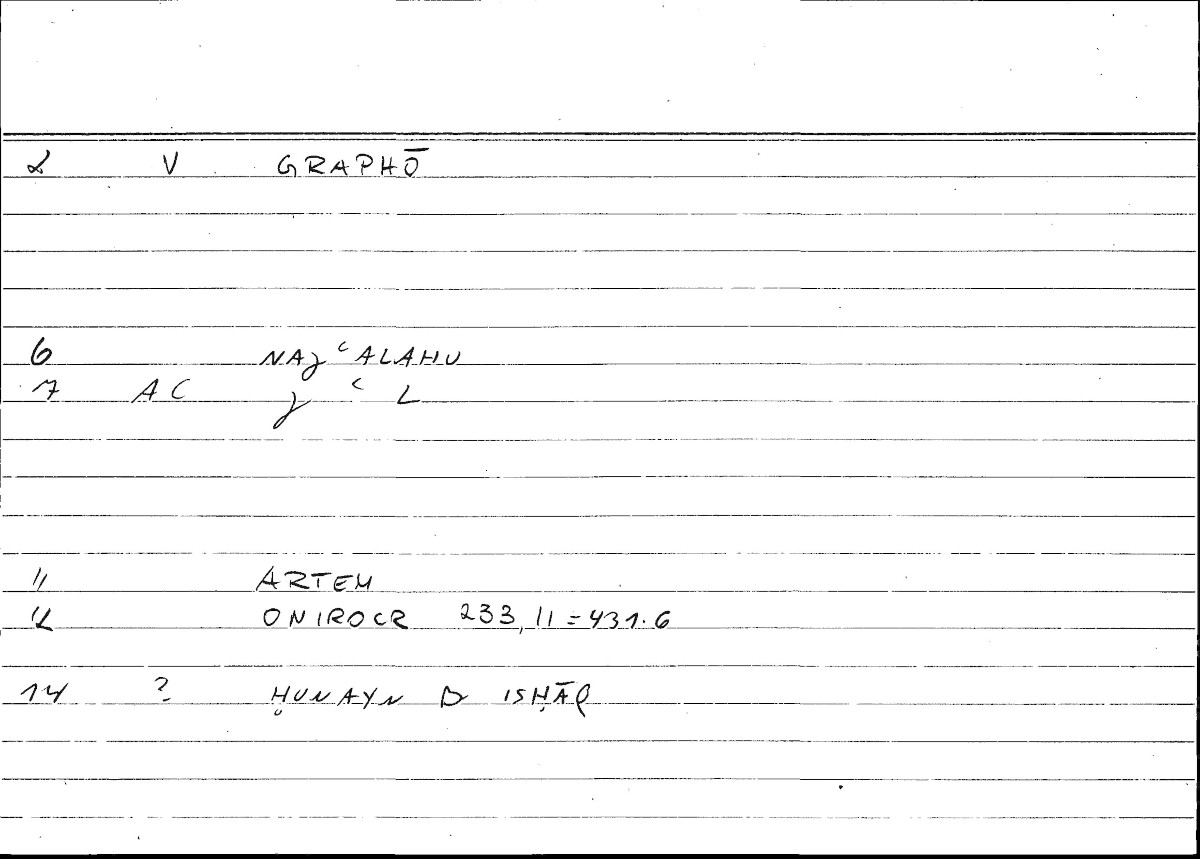 2 V GRAPHŌ
6 NAJ ʿALAHU
7 AC J ʿ L
11 ARTEM
12 ONIROCR 233, 11 = 431.6
14 ? ḤUNAYN B ISḤĀQ